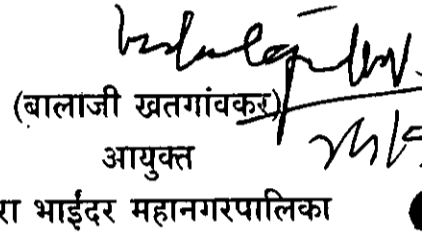 (बालाजी खतगांवकर)
आयुक्त
रा भाईंदर महानगरपालिका